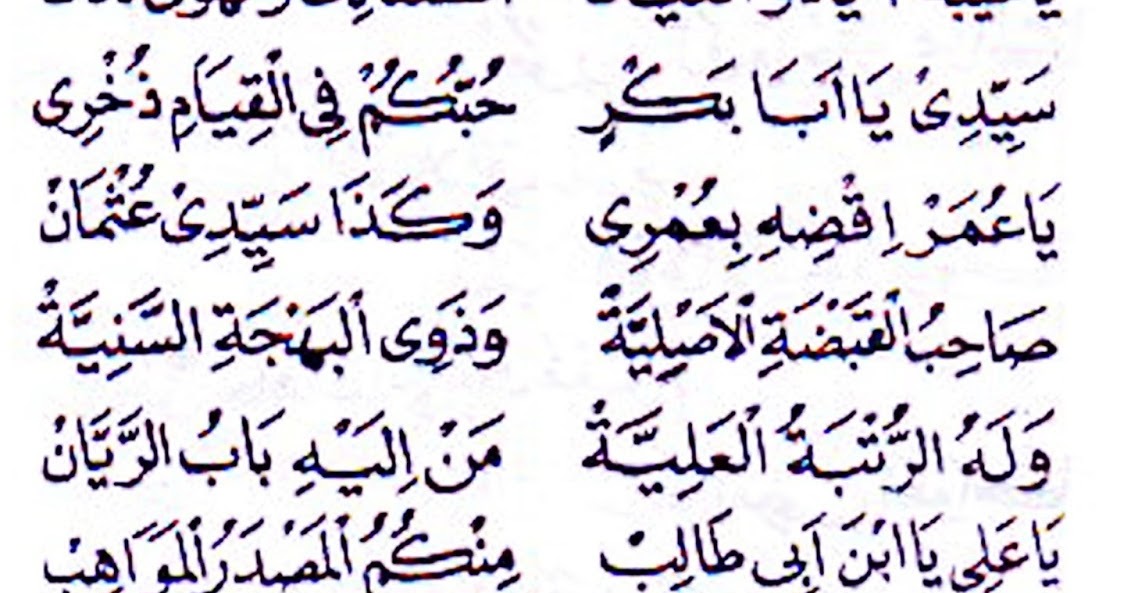 سَيِّدِىْ يَا اَبَا بَكْرٍ حُبُّكُمْ فِى الْقِيَامِ ذُخْرِى
يَاعُمَرْ اِقْضِهِ بِعُمْرِى وَكَذَا سَيِّدِىْ عُثْمَانْ
صَاحِبُ الْقَبْضَةِ الْاَصْلِيَّةْ وَذَوِى الْبَهْجَةِ السَّنِيَّةْ
وَلَهُ الرُّتْبَةُ الْعَلِيَّةْ مَنْ اِلَيْهِ بَابُ الرَّيَّانْ
يَاعَلِى يَا ابْنَ اَبِى طَالِبْ مِنْكُمُ الْمَصْدَرُ الْمَوَاهِبْ